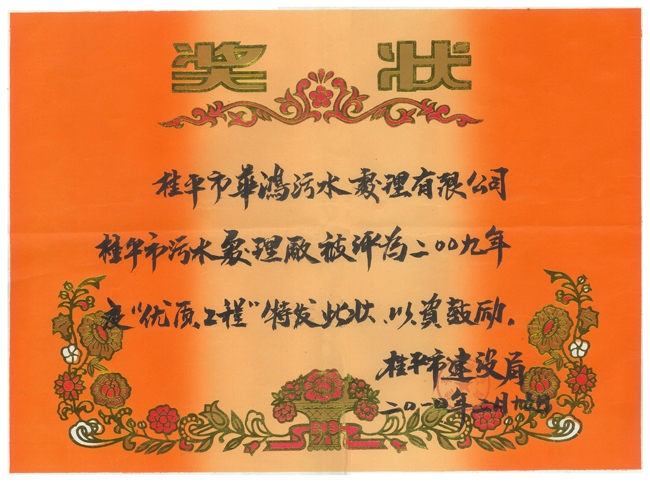 奖状
桂平市華鴻污水處理有限公司
桂平市污水處理廠被评为二00九年
度“优质工程”特发此状、以資鼓励。
桂平市建设局
二〇一〇年二月